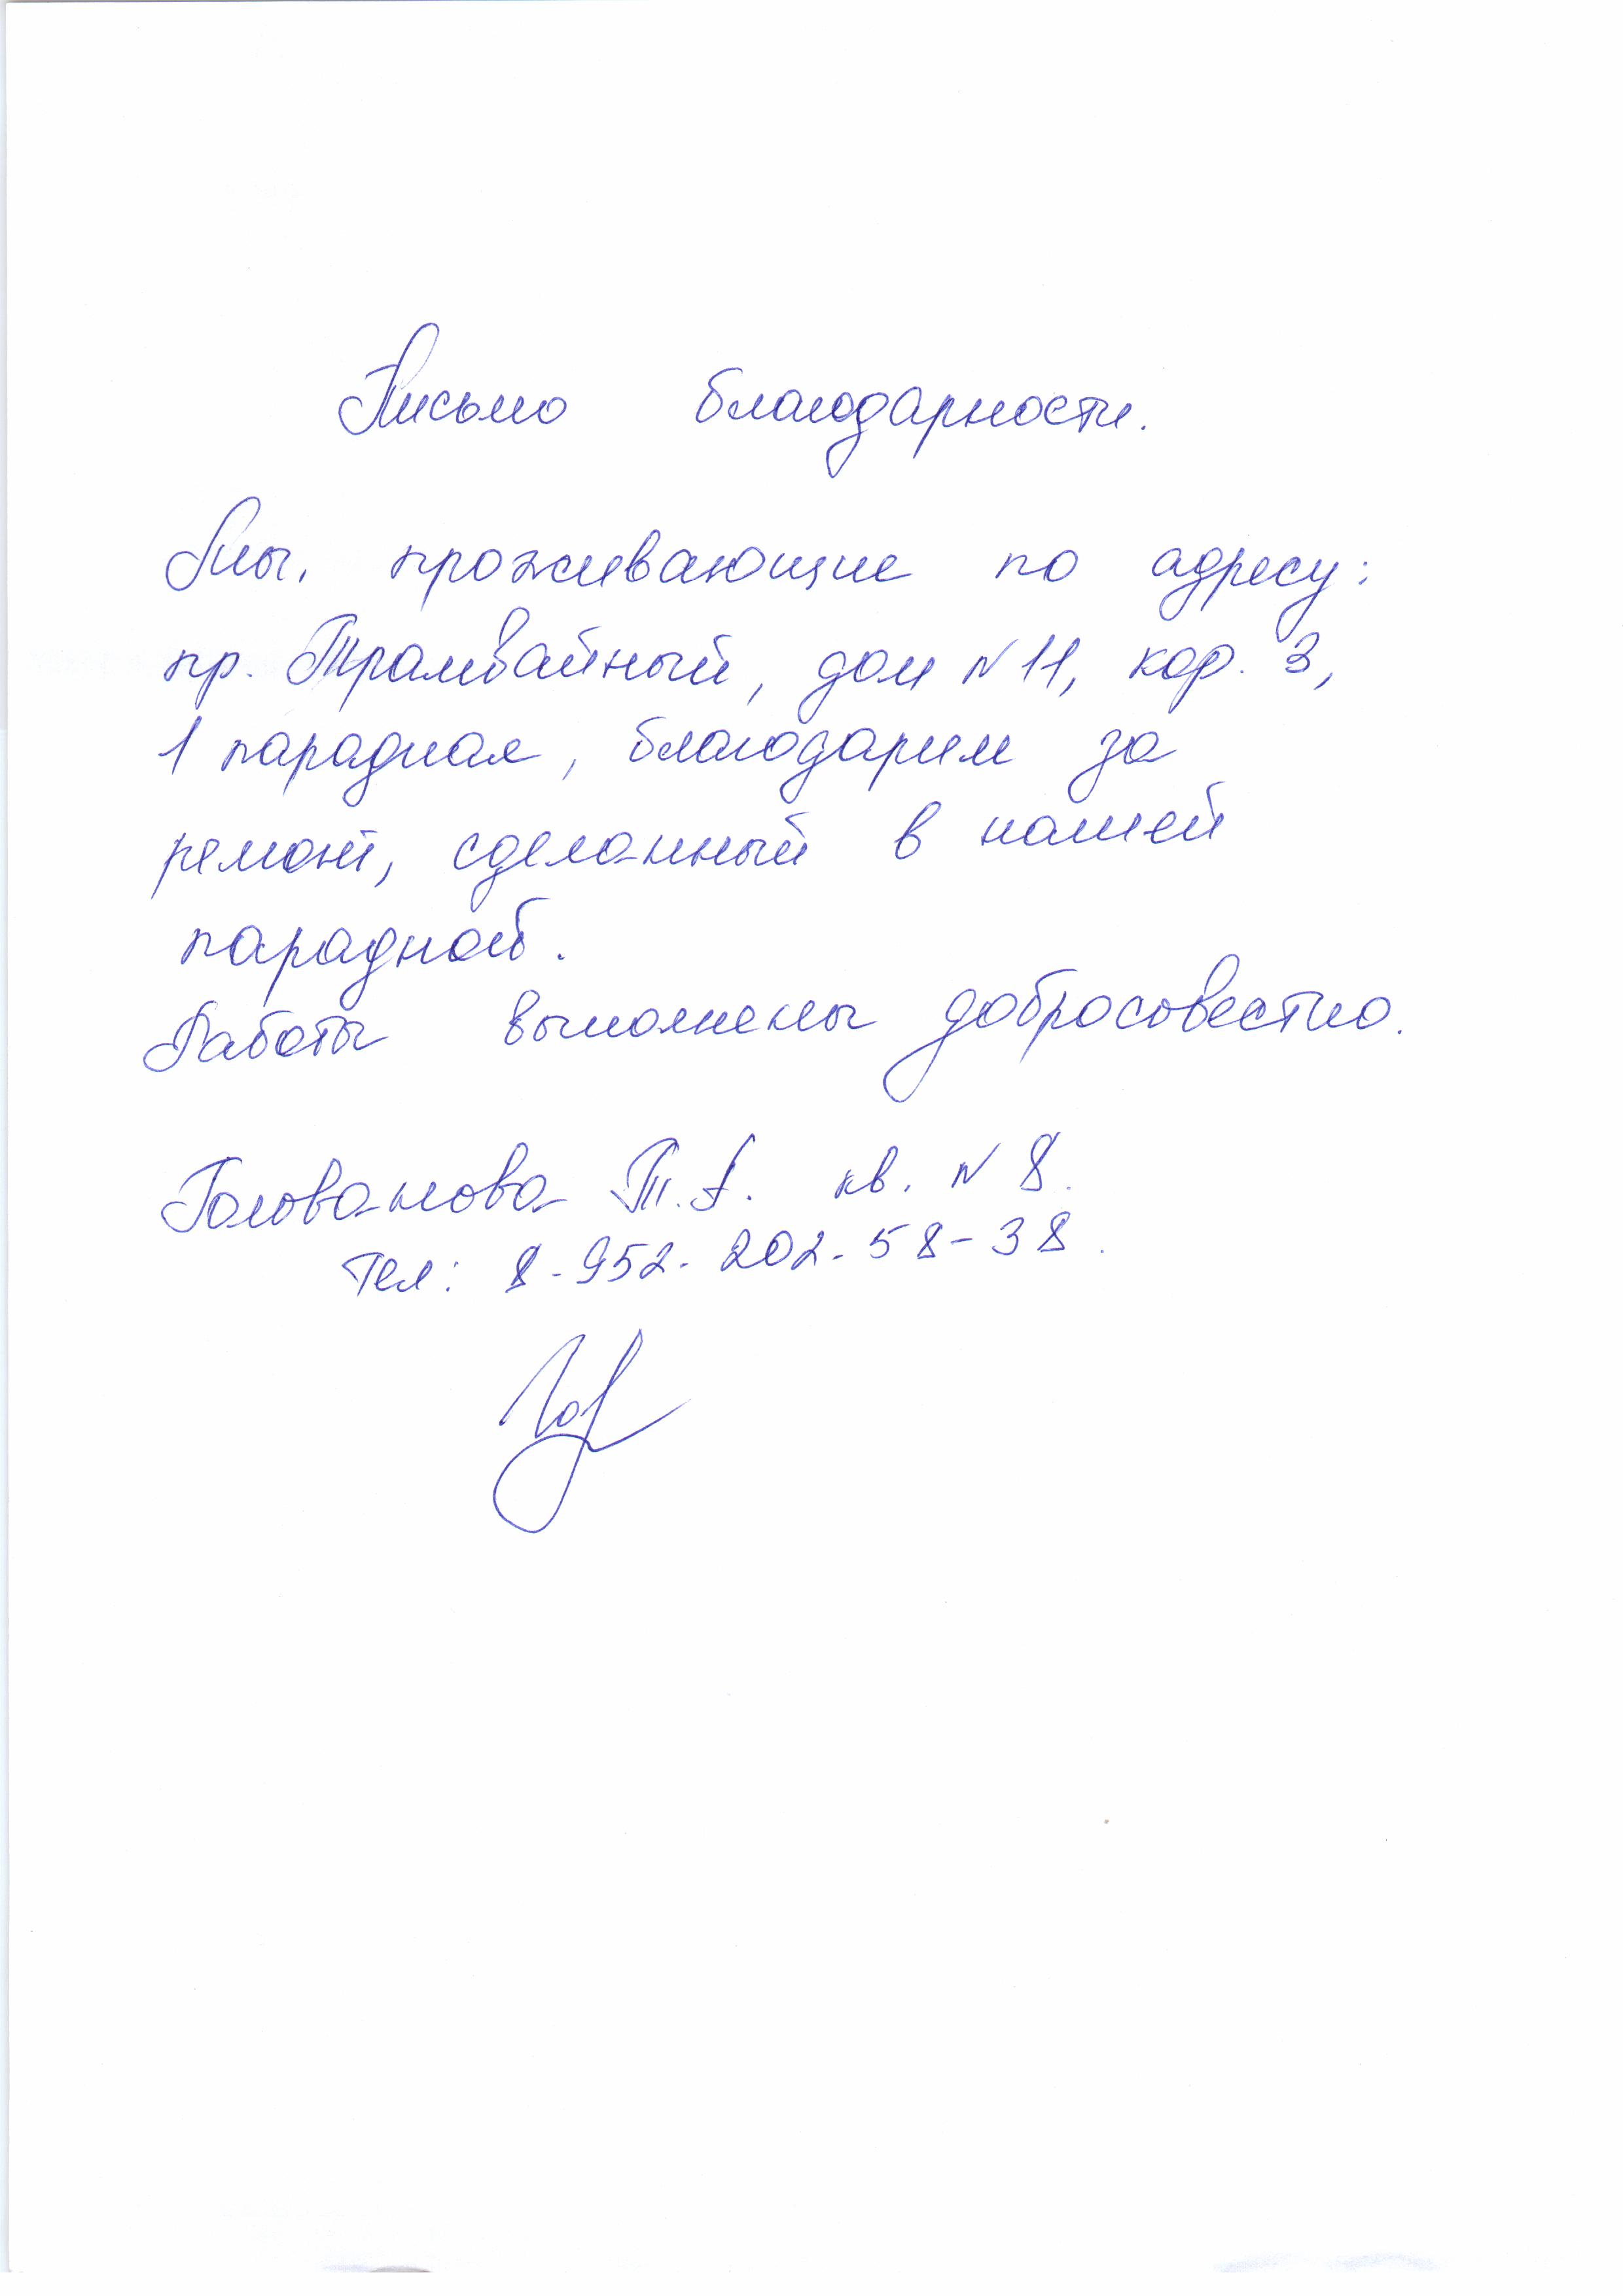 Письмо благодарности.
Мы, проживающие по адресу:
пр. Трамвайный, дом №11, кор. 3,
1 парадная, благодарим за
ремонт, сделанный в нашей
парадной.
Работы выполнены добросовестно.
Голованова Т. А. кв. №8.
Тел: 8-952-202-58-38.